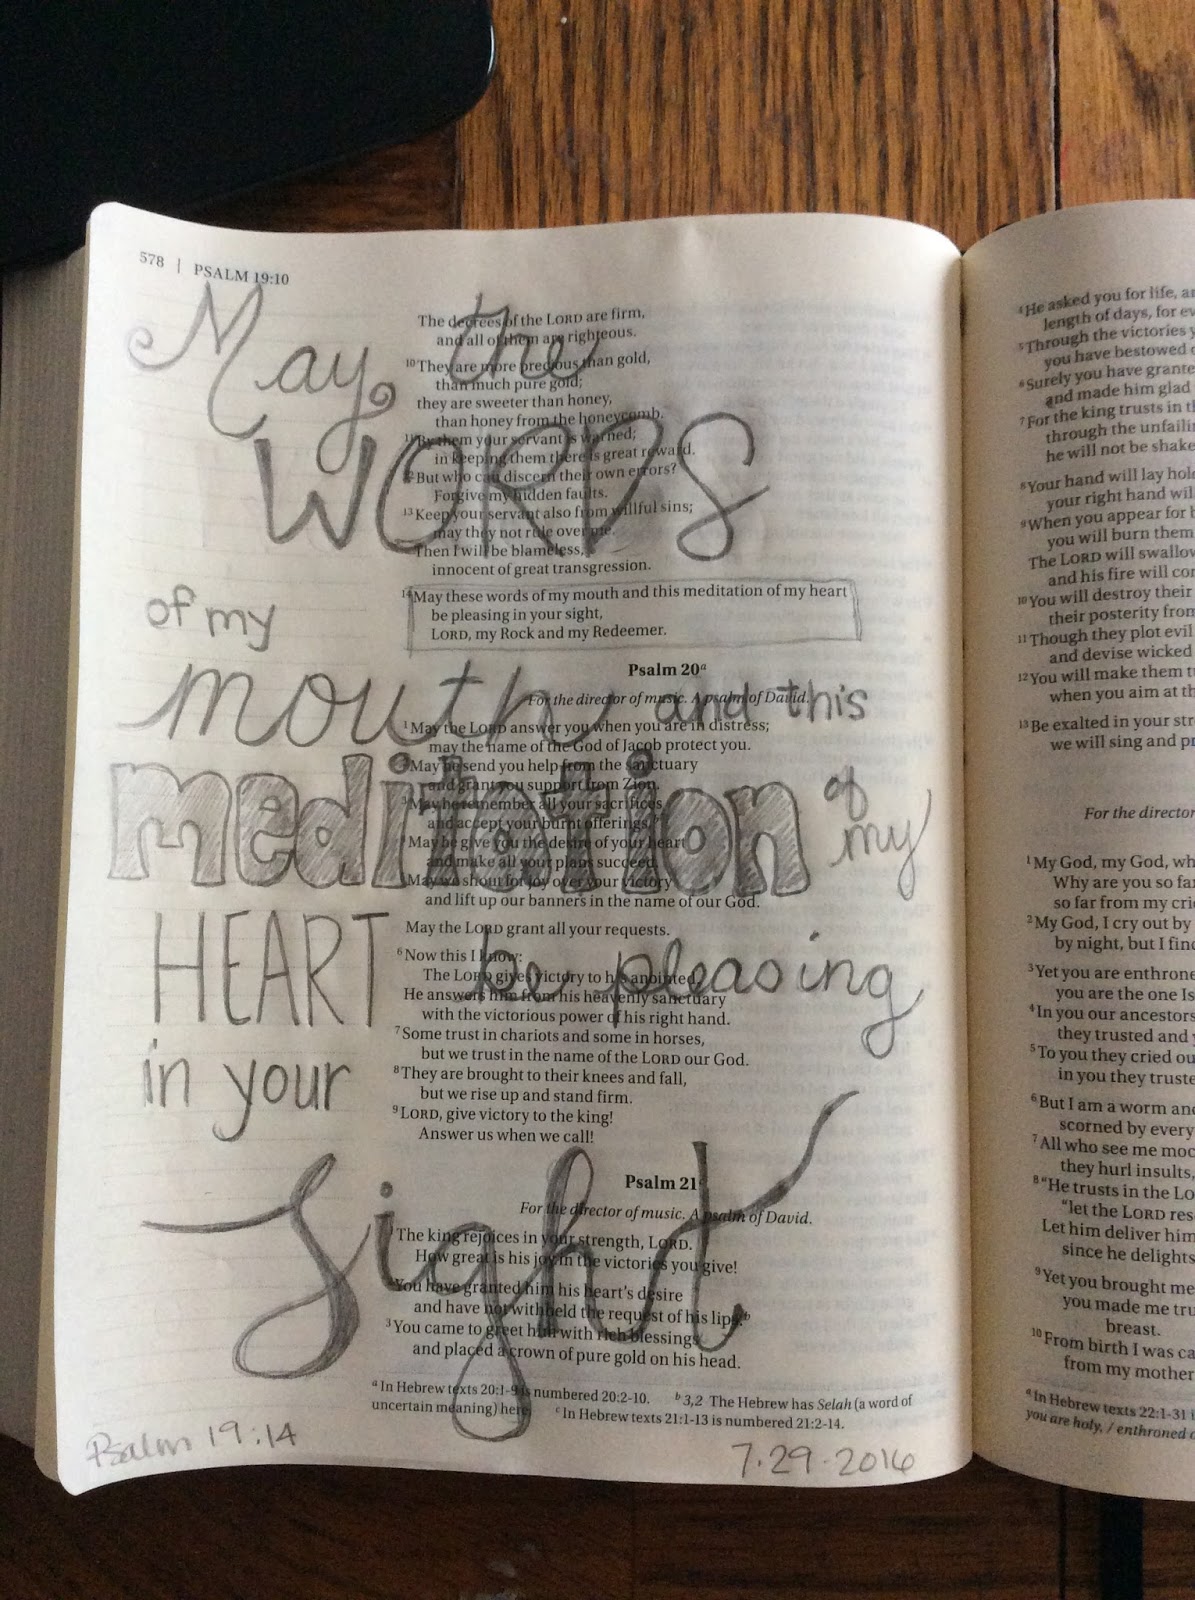 578 | PSALM 19:10
May the
WORDS
of my
mouth and this
meditation of my
HEART be pleasing
in your
sight
Psalm 19:14
7.29.2016
The decrees of the LORD are firm,
and all of them are righteous.
10 They are more precious than gold,
than much pure gold;
they are sweeter than honey,
than honey from the honeycomb.
11 By them your servant is warned;
in keeping them there is great reward.
12 But who can discern their own errors?
Forgive my hidden faults.
13 Keep your servant also from willful sins;
may they not rule over me.
Then I will be blameless,
innocent of great transgression.
14 May these words of my mouth and this meditation of my heart
be pleasing in your sight,
LORD, my Rock and my Redeemer.
Psalm 20a
For the director of music. A psalm of David.
1 May the LORD answer you when you are in distress;
may the name of the God of Jacob protect you.
2 May he send you help from the sanctuary
and grant you support from Zion.
3 May he remember all your sacrifices
and accept your burnt offerings.b
4 May he give you the desire of your heart
and make all your plans succeed.
5 May we shout for joy over your victory
and lift up our banners in the name of our God.
May the LORD grant all your requests.
6 Now this I know:
The LORD gives victory to his anointed.
He answers him from his heavenly sanctuary
with the victorious power of his right hand.
7 Some trust in chariots and some in horses,
but we trust in the name of the LORD our God.
8 They are brought to their knees and fall,
but we rise up and stand firm.
9 LORD, give victory to the king!
Answer us when we call!
Psalm 21c
For the director of music. A psalm of David.
1 The king rejoices in your strength, LORD.
How great is his joy in the victories you give!
2 You have granted him his heart's desire
and have not withheld the request of his lips.b
3 You came to greet him with rich blessings
and placed a crown of pure gold on his head.
a In Hebrew texts 20:1-9 is numbered 20:2-10. b 3,2 The Hebrew has Selah (a word of
uncertain meaning) here. c In Hebrew texts 21:1-13 is numbered 21:2-14.
4 He asked you for life,
length of days, for
5 Through the victories
you have bestowed
6 Surely you have
and made him glad
7 For the king trusts in
through the
he will not be
8 Your hand will lay
your right hand will
9 When you appear for
you will burn them
The LORD will swallow
and his fire will
10 You will destroy their
their posterity from
11 Though they plot evil
and devise wicked
12 You will make them
when you aim at
13 Be exalted in your
we will sing and
For the director
1 My God, my God,
Why are you so far
so far from my
2 My God, I cry out by
by night, but I
3 Yet you are
you are the one
4 In you our ancestors
they trusted and
5 To you they cried
in you they
6 But I am a worm and
scorned by every
7 All who see me
they hurl insults,
8 "He trusts in the
"let the LORD
Let him deliver him
since he delights
9 Yet you brought me
you made me
breast.
10 From birth I was
from my
a In Hebrew texts 22:1-31
you are holy, / enthroned